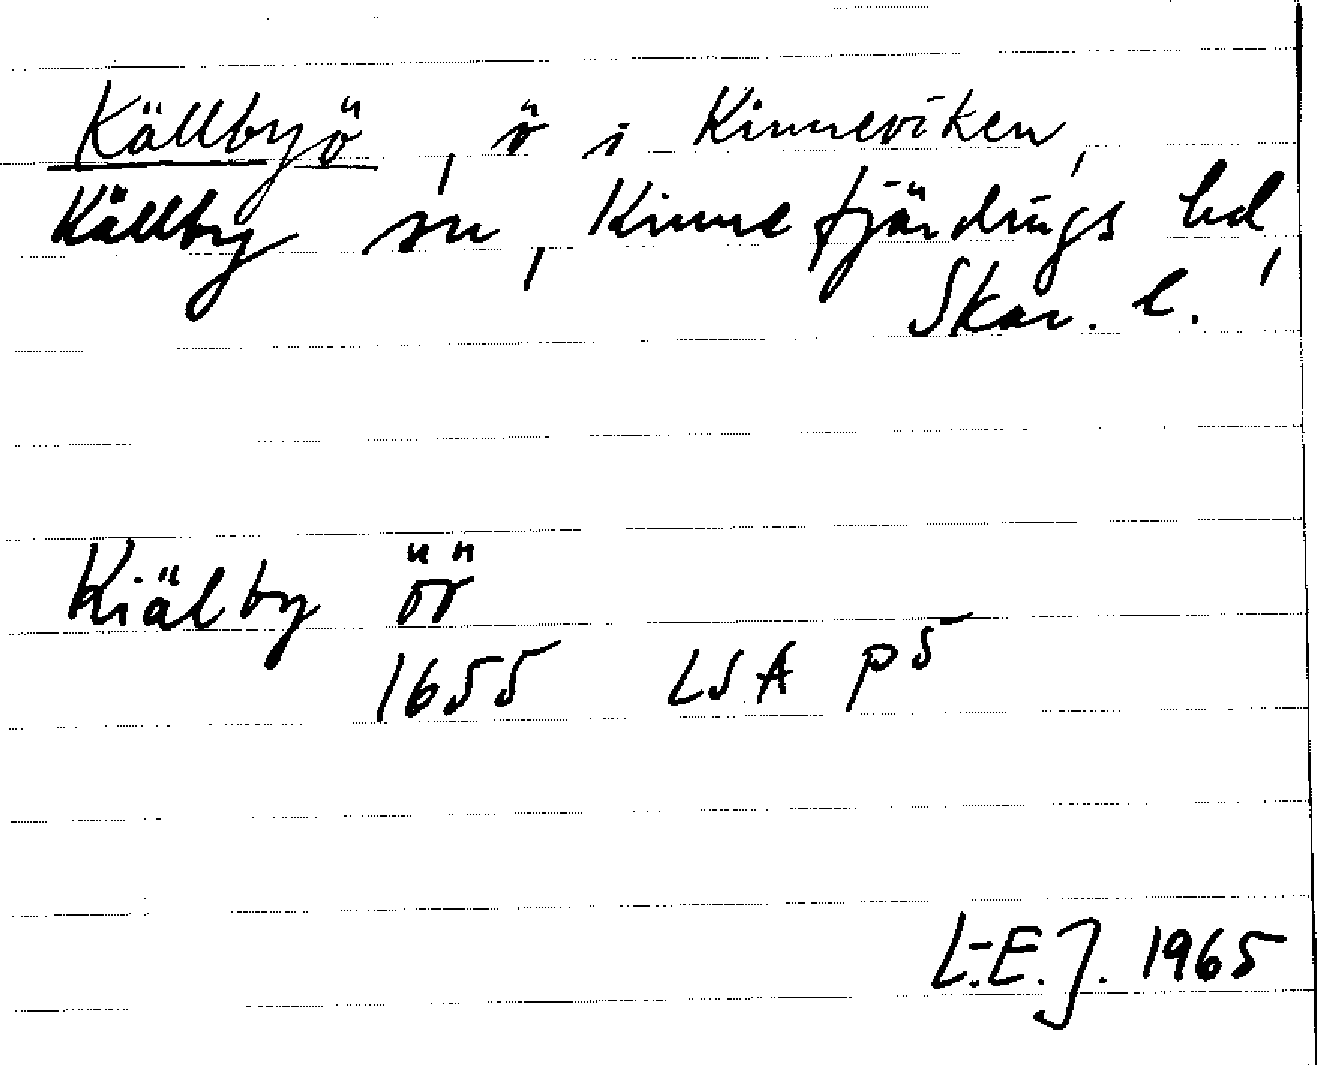 Källbyö, ö i Kinneviken,
Källby sn, Kinnefjärdings hd,
Skar. l.
Kiälby öö
1655 LSA p 5
L-E.J. 1965